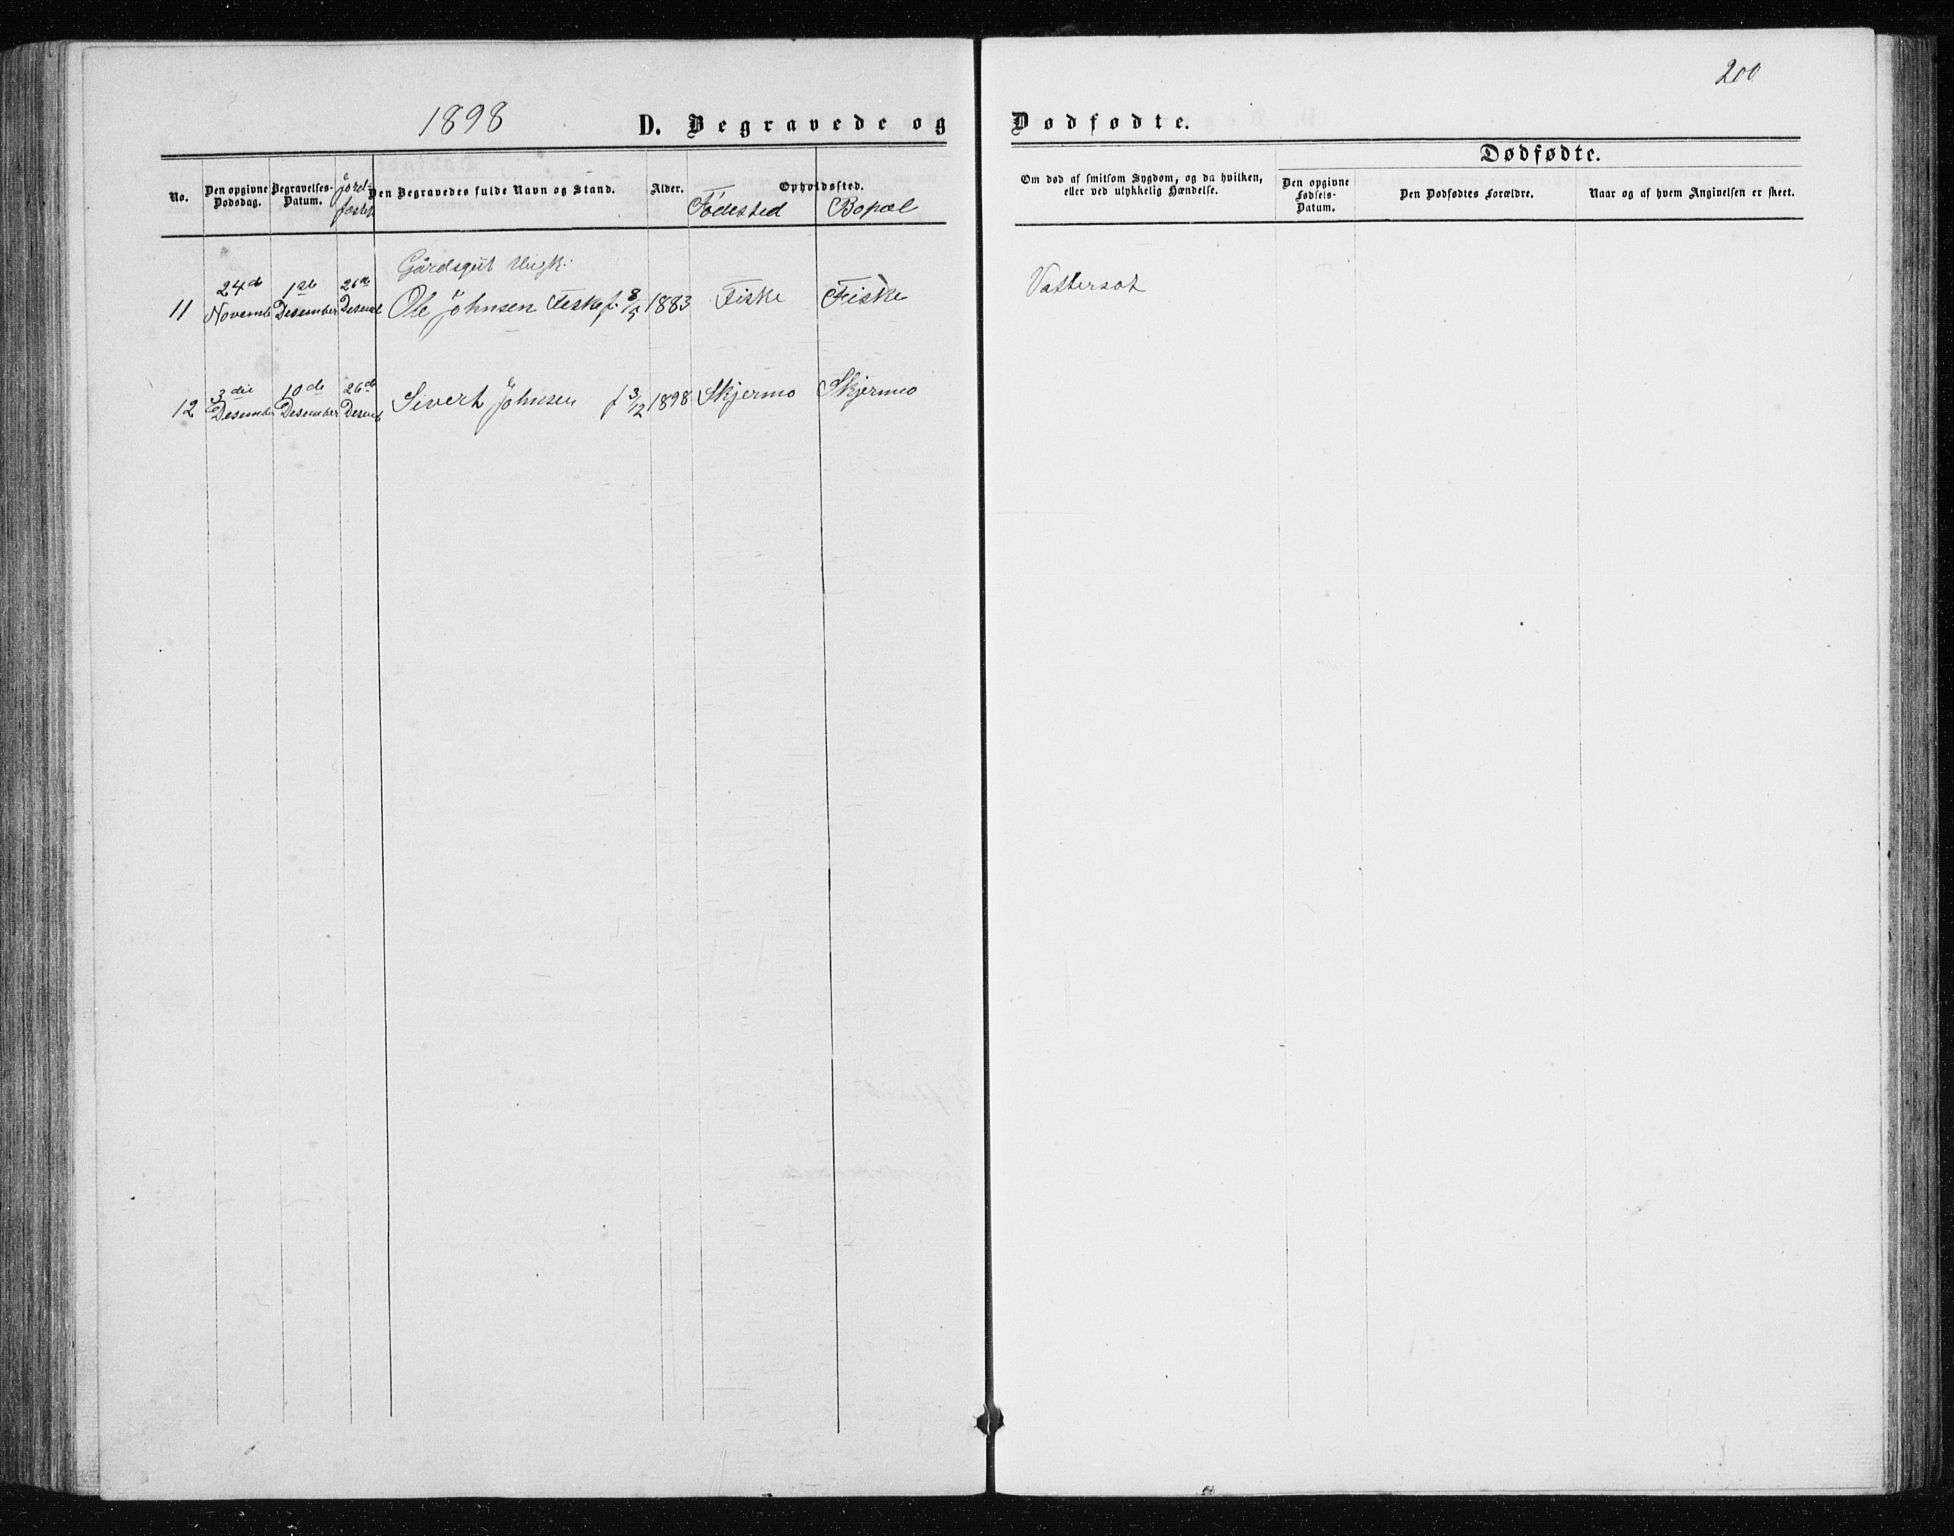 200
1898 D. Begravede og Dødfødte.
Dødfødte.
No.
Den opgivne Dødsdag.
Begravelses-Datum.
Jord-fæstet
Den Begravedes fulde Navn og Stand.
Alder.
Opholdssted.
Födested
Bopæl
Om død af smitsom Sygdom, og da hvilken,
eller ved ulykkelig Hændelse.
Den opgivne Fødsels-Datum.
Den Dødfødtes Forældre.
Naar og af hvem Angivelsen er skeet.
Gårdsgut Ungk.
24de 1ste 26de
11 Novemb Desember Desemb Ole Johnsen Fiske f. 8/5 1883 Fiske Fiske Vattersot
3die 10de 26de
12 Desember Desember Desemb Sivert Johnsen f 3/12 1898 Skjermo Skjermo